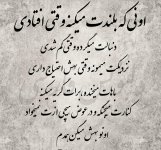 اونی که بلندت میکنه وقتی افتادی
دنبالت میگرده وقتی گم شدی
نزدیکت میمونه وقتی بهش احتیاج داری
باهات میخنده برات گریه میکنه
کنارت میجنگه و در عوض هیچی ازت نمیخواد
اونو بهش میگن همدم